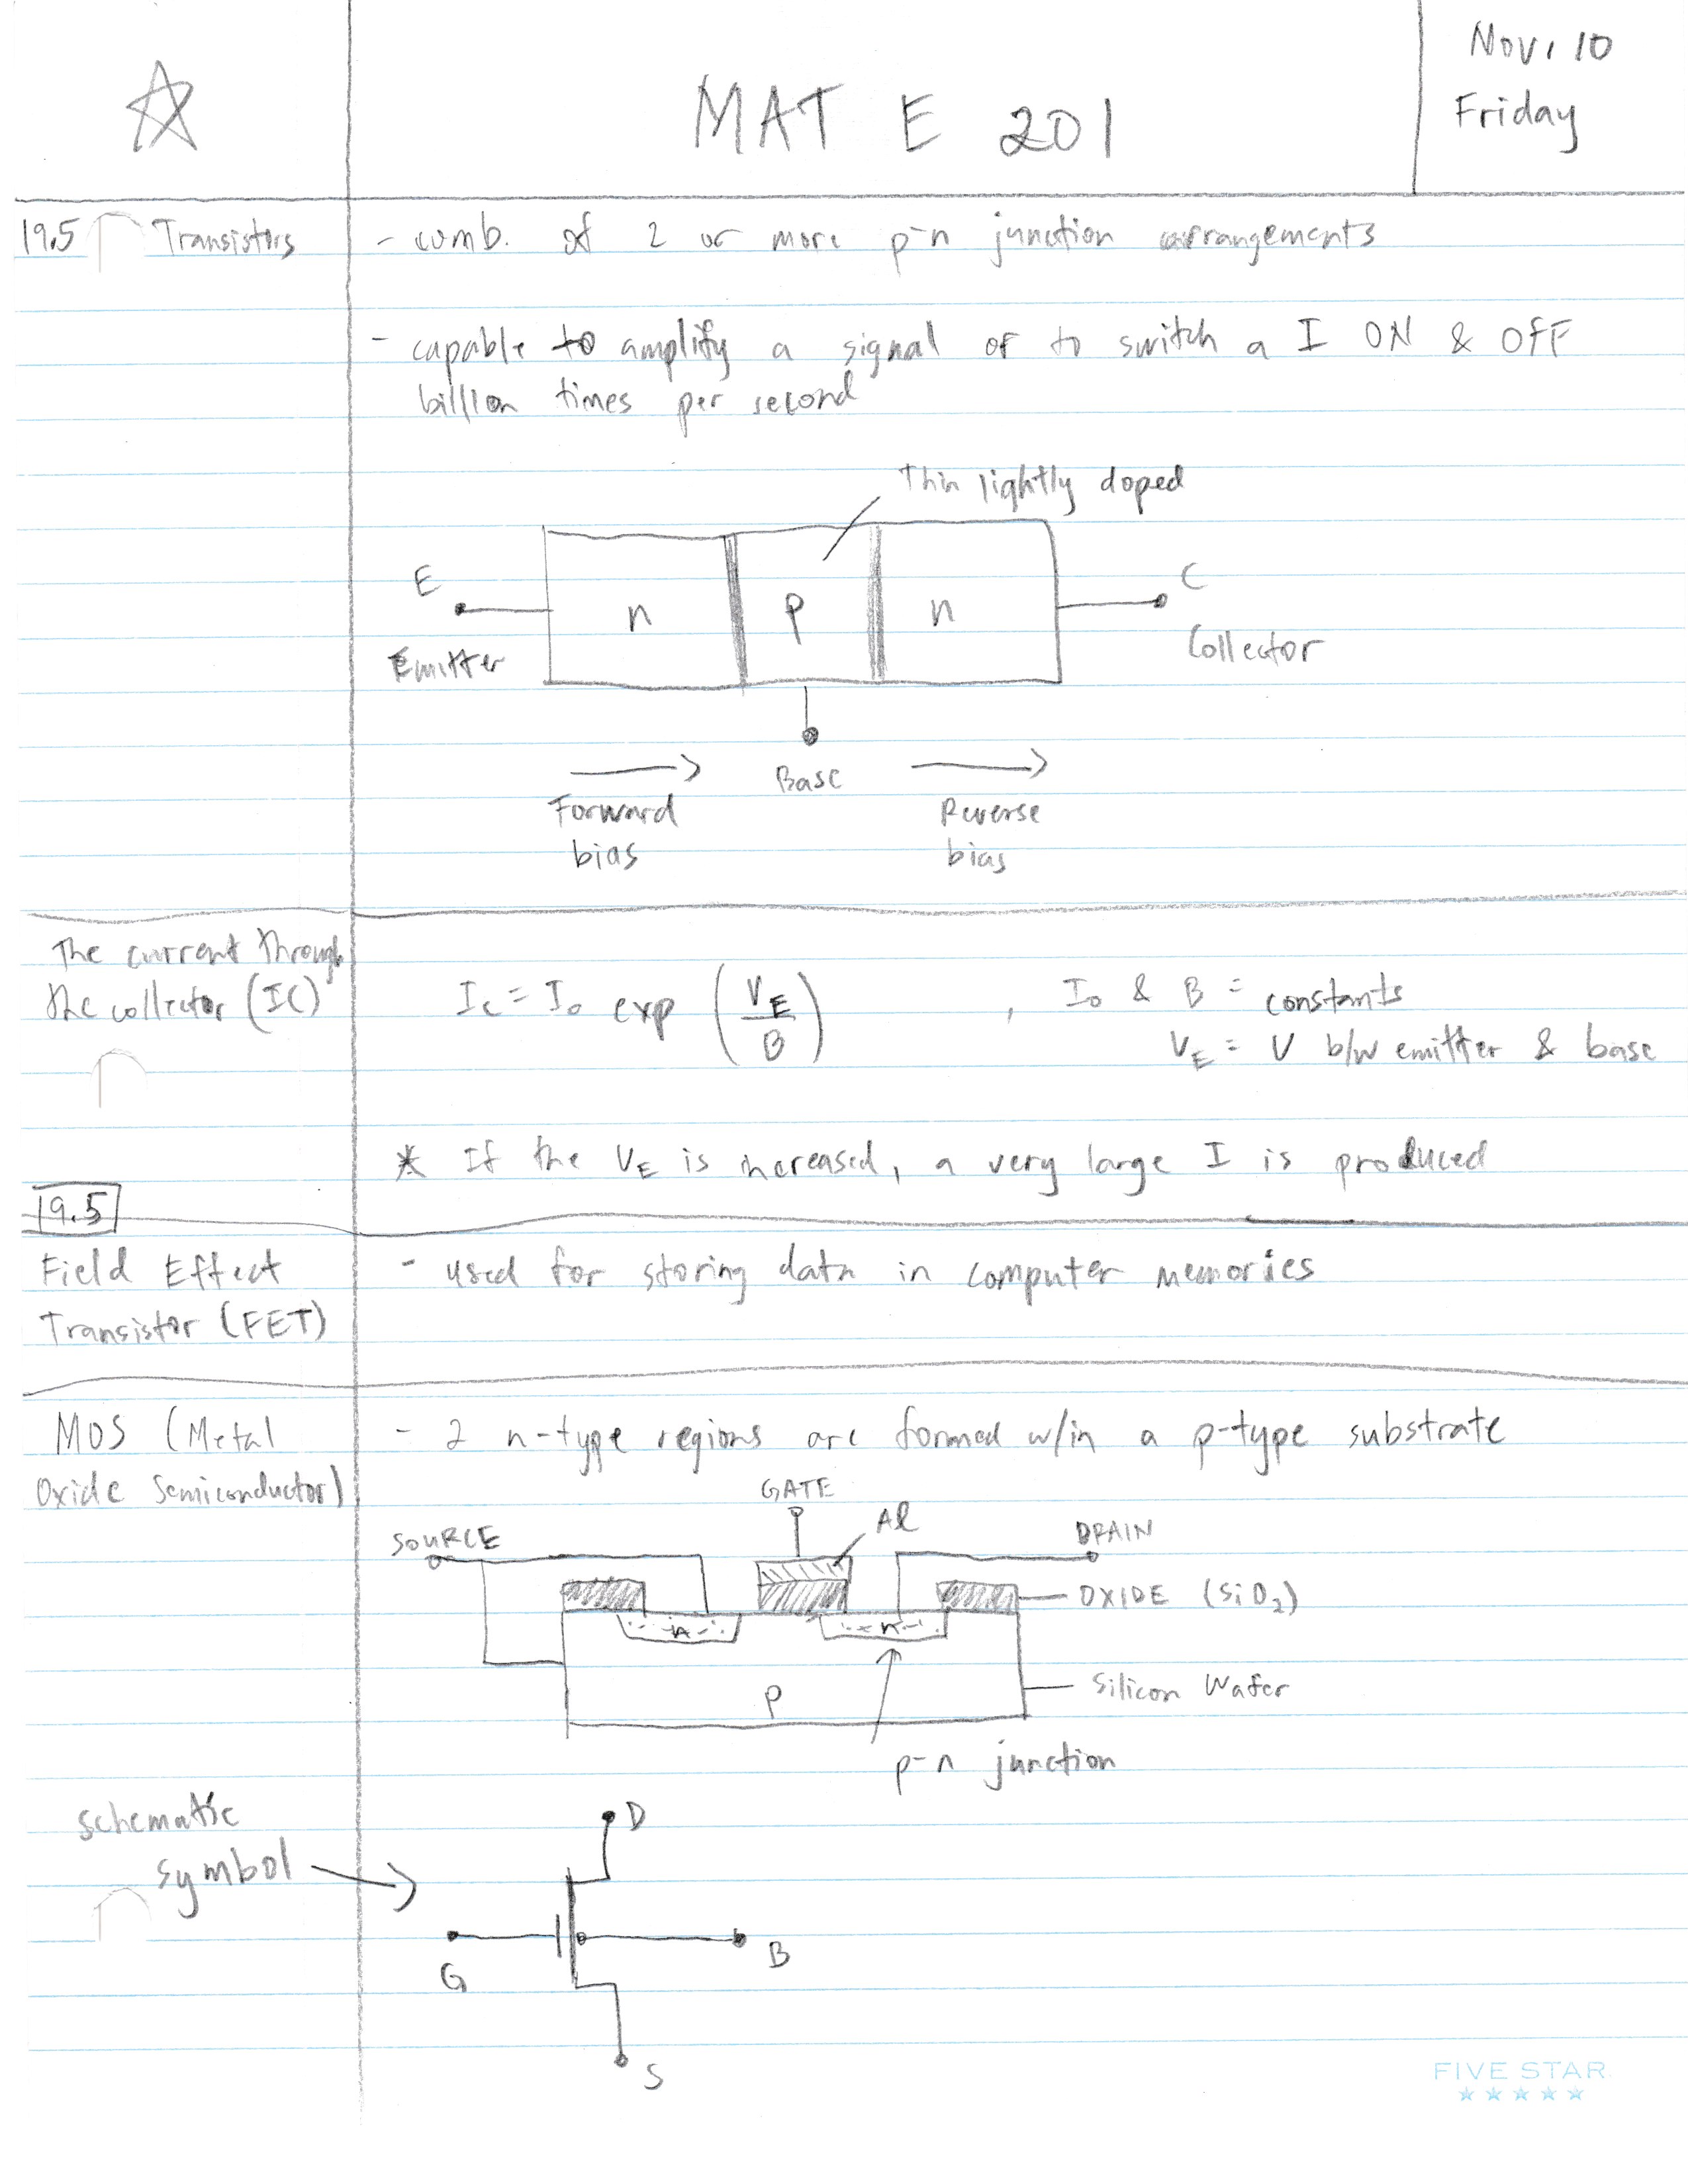 ☆
MAT E 201
Nov. 10
Friday
19.5 Transistors
- comb. of 2 or more p-n junction arrangements
- capable to amplify a signal or to switch a I ON & OFF
billion times per second
Thin lightly doped
E
Emitter
n
p
n
C
Collector
Base
Forward
bias
Reverse
bias
The current through
the collector (IC)
Ic = Io exp (VE/B) , Io & B = constants
VE = V b/w emitter & base
* If the VE is increased, a very large I is produced
19.5
Field Effect
Transistor (FET)
- used for storing data in computer memories
MOS (Metal
Oxide Semiconductor)
- 2 n-type regions are formed w/in a p-type substrate
GATE
Al
SOURCE
DRAIN
OXIDE (SiO2)
n
n
p
Silicon Wafer
p-n junction
schematic
symbol
D
G
B
S
FIVE STAR
★★★★★